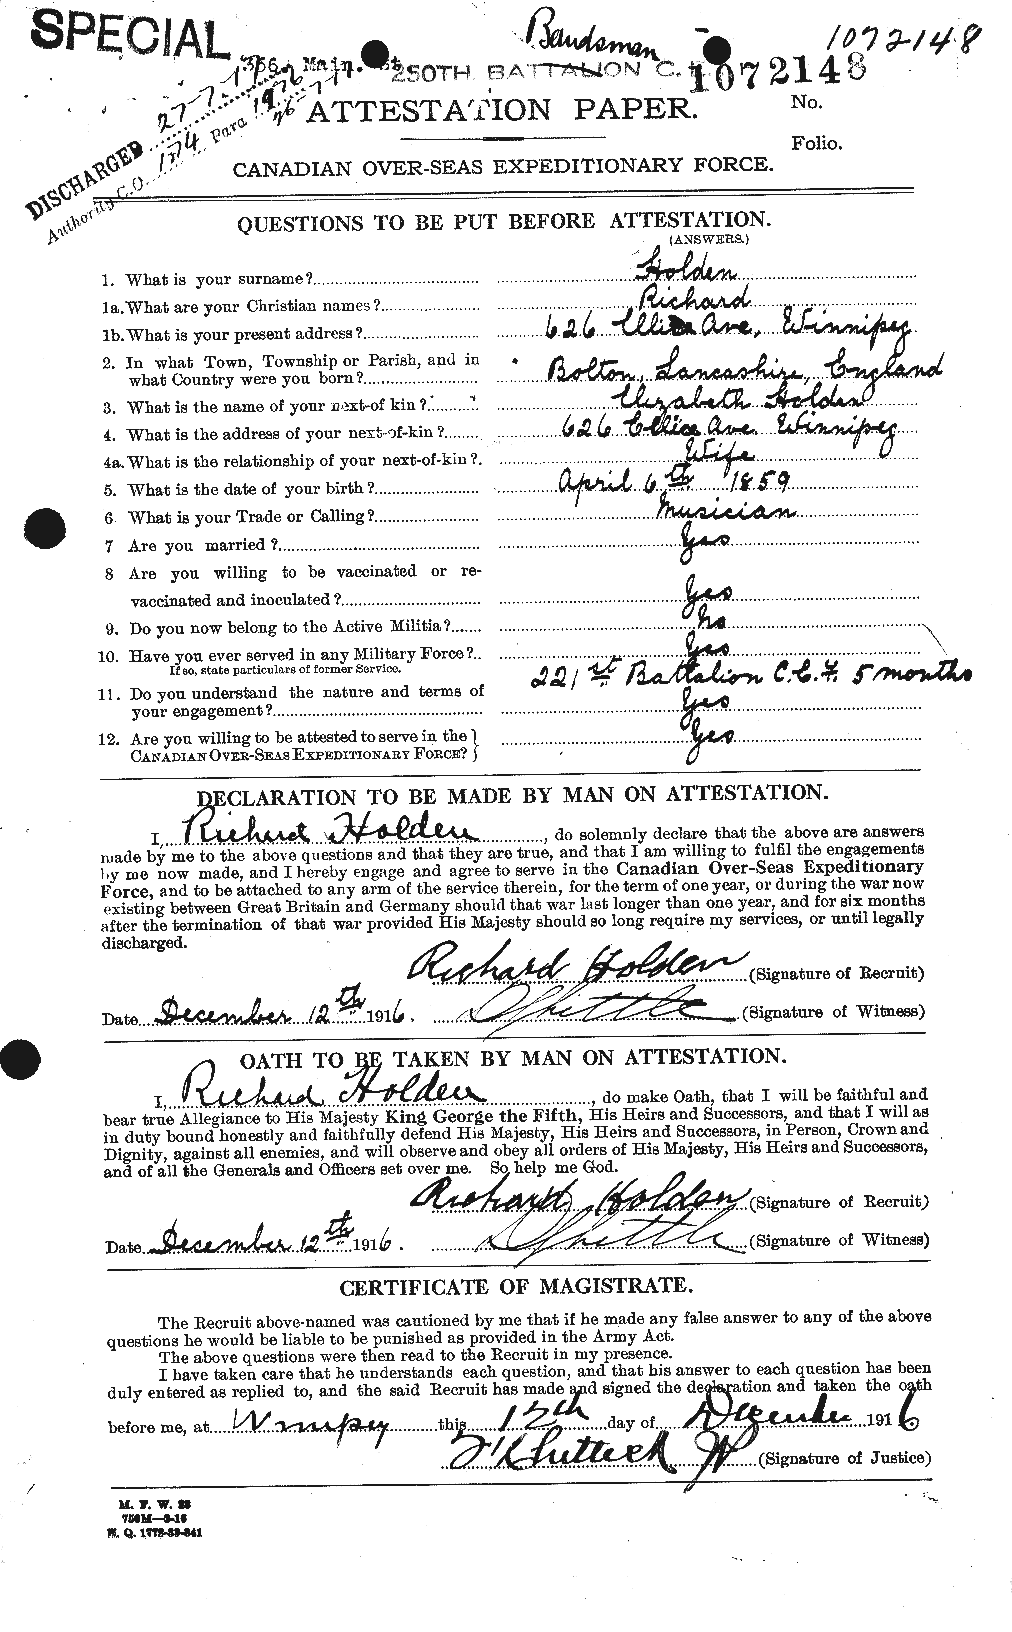 SPECIAL
Bandsman
1072148
366 Main St
250TH BATTALION C.
1072148
No.
Folio.
DISCHARGED 27-7-17
Authority C.O. 174 Para 1976
26-7-17
ATTESTATION PAPER.
CANADIAN OVER-SEAS EXPEDITIONARY FORCE.
QUESTIONS TO BE PUT BEFORE ATTESTATION.
(ANSWERS.)
1. What is your surname? Holden
1a. What are your Christian names? Richard
1b. What is your present address? 626 Ellice Ave, Winnipeg
2. In what Town, Township or Parish, and in
what Country were you born? Bolton, Lancashire, England
3. What is the name of your next-of kin? Elizabeth Holden
4. What is the address of your next-of-kin? 626 Ellice Ave Winnipeg
4a. What is the relationship of your next-of-kin? Wife
5. What is the date of your birth? April 6th 1859
6 What is your Trade or Calling? Musician
7 Are you married? Yes
8 Are you willing to be vaccinated or re-
vaccinated and inoculated? Yes
9. Do you now belong to the Active Militia? No
10. Have you ever served in any Military Force? Yes
If so, state particulars of former Service. 221st Battalion C.E.F. 5 months
11. Do you understand the nature and terms of
your engagement? Yes
12. Are you willing to be attested to serve in the
CANADIAN OVER-SEAS EXPEDITIONARY FORCE? Yes
DECLARATION TO BE MADE BY MAN ON ATTESTATION.
I, Richard Holden, do solemnly declare that the above are answers
made by me to the above questions and that they are true, and that I am willing to fulfil the engagements
by me now made, and I hereby engage and agree to serve in the Canadian Over-Seas Expeditionary
Force, and to be attached to any arm of the service therein, for the term of one year, or during the war now
existing between Great Britain and Germany should that war last longer than one year, and for six months
after the termination of that war provided His Majesty should so long require my services, or until legally
discharged.
Richard Holden (Signature of Recruit)
Date December 12th 1916. (Signature of Witness)
OATH TO BE TAKEN BY MAN ON ATTESTATION.
I, Richard Holden, do make Oath, that I will be faithful and
bear true Allegiance to His Majesty King George the Fifth, His Heirs and Successors, and that I will as
in duty bound honestly and faithfully defend His Majesty, His Heirs and Successors, in Person, Crown and
Dignity, against all enemies, and will observe and obey all orders of His Majesty, His Heirs and Successors,
and of all the Generals and Officers set over me. So help me God.
Richard Holden (Signature of Recruit)
Date December 12th 1916. (Signature of Witness)
CERTIFICATE OF MAGISTRATE.
The Recruit above-named was cautioned by me that if he made any false answer to any of the above
questions he would be liable to be punished as provided in the Army Act.
The above questions were then read to the Recruit in my presence.
I have taken care that he understands each question, and that his answer to each question has been
duly entered as replied to, and the said Recruit has made and signed the declaration and taken the oath
before me, at Winnipeg this 12th day of December 1916
JP (Signature of Justice)
M. F. W. 23
750M—9-16
H. Q. 1772-39-841